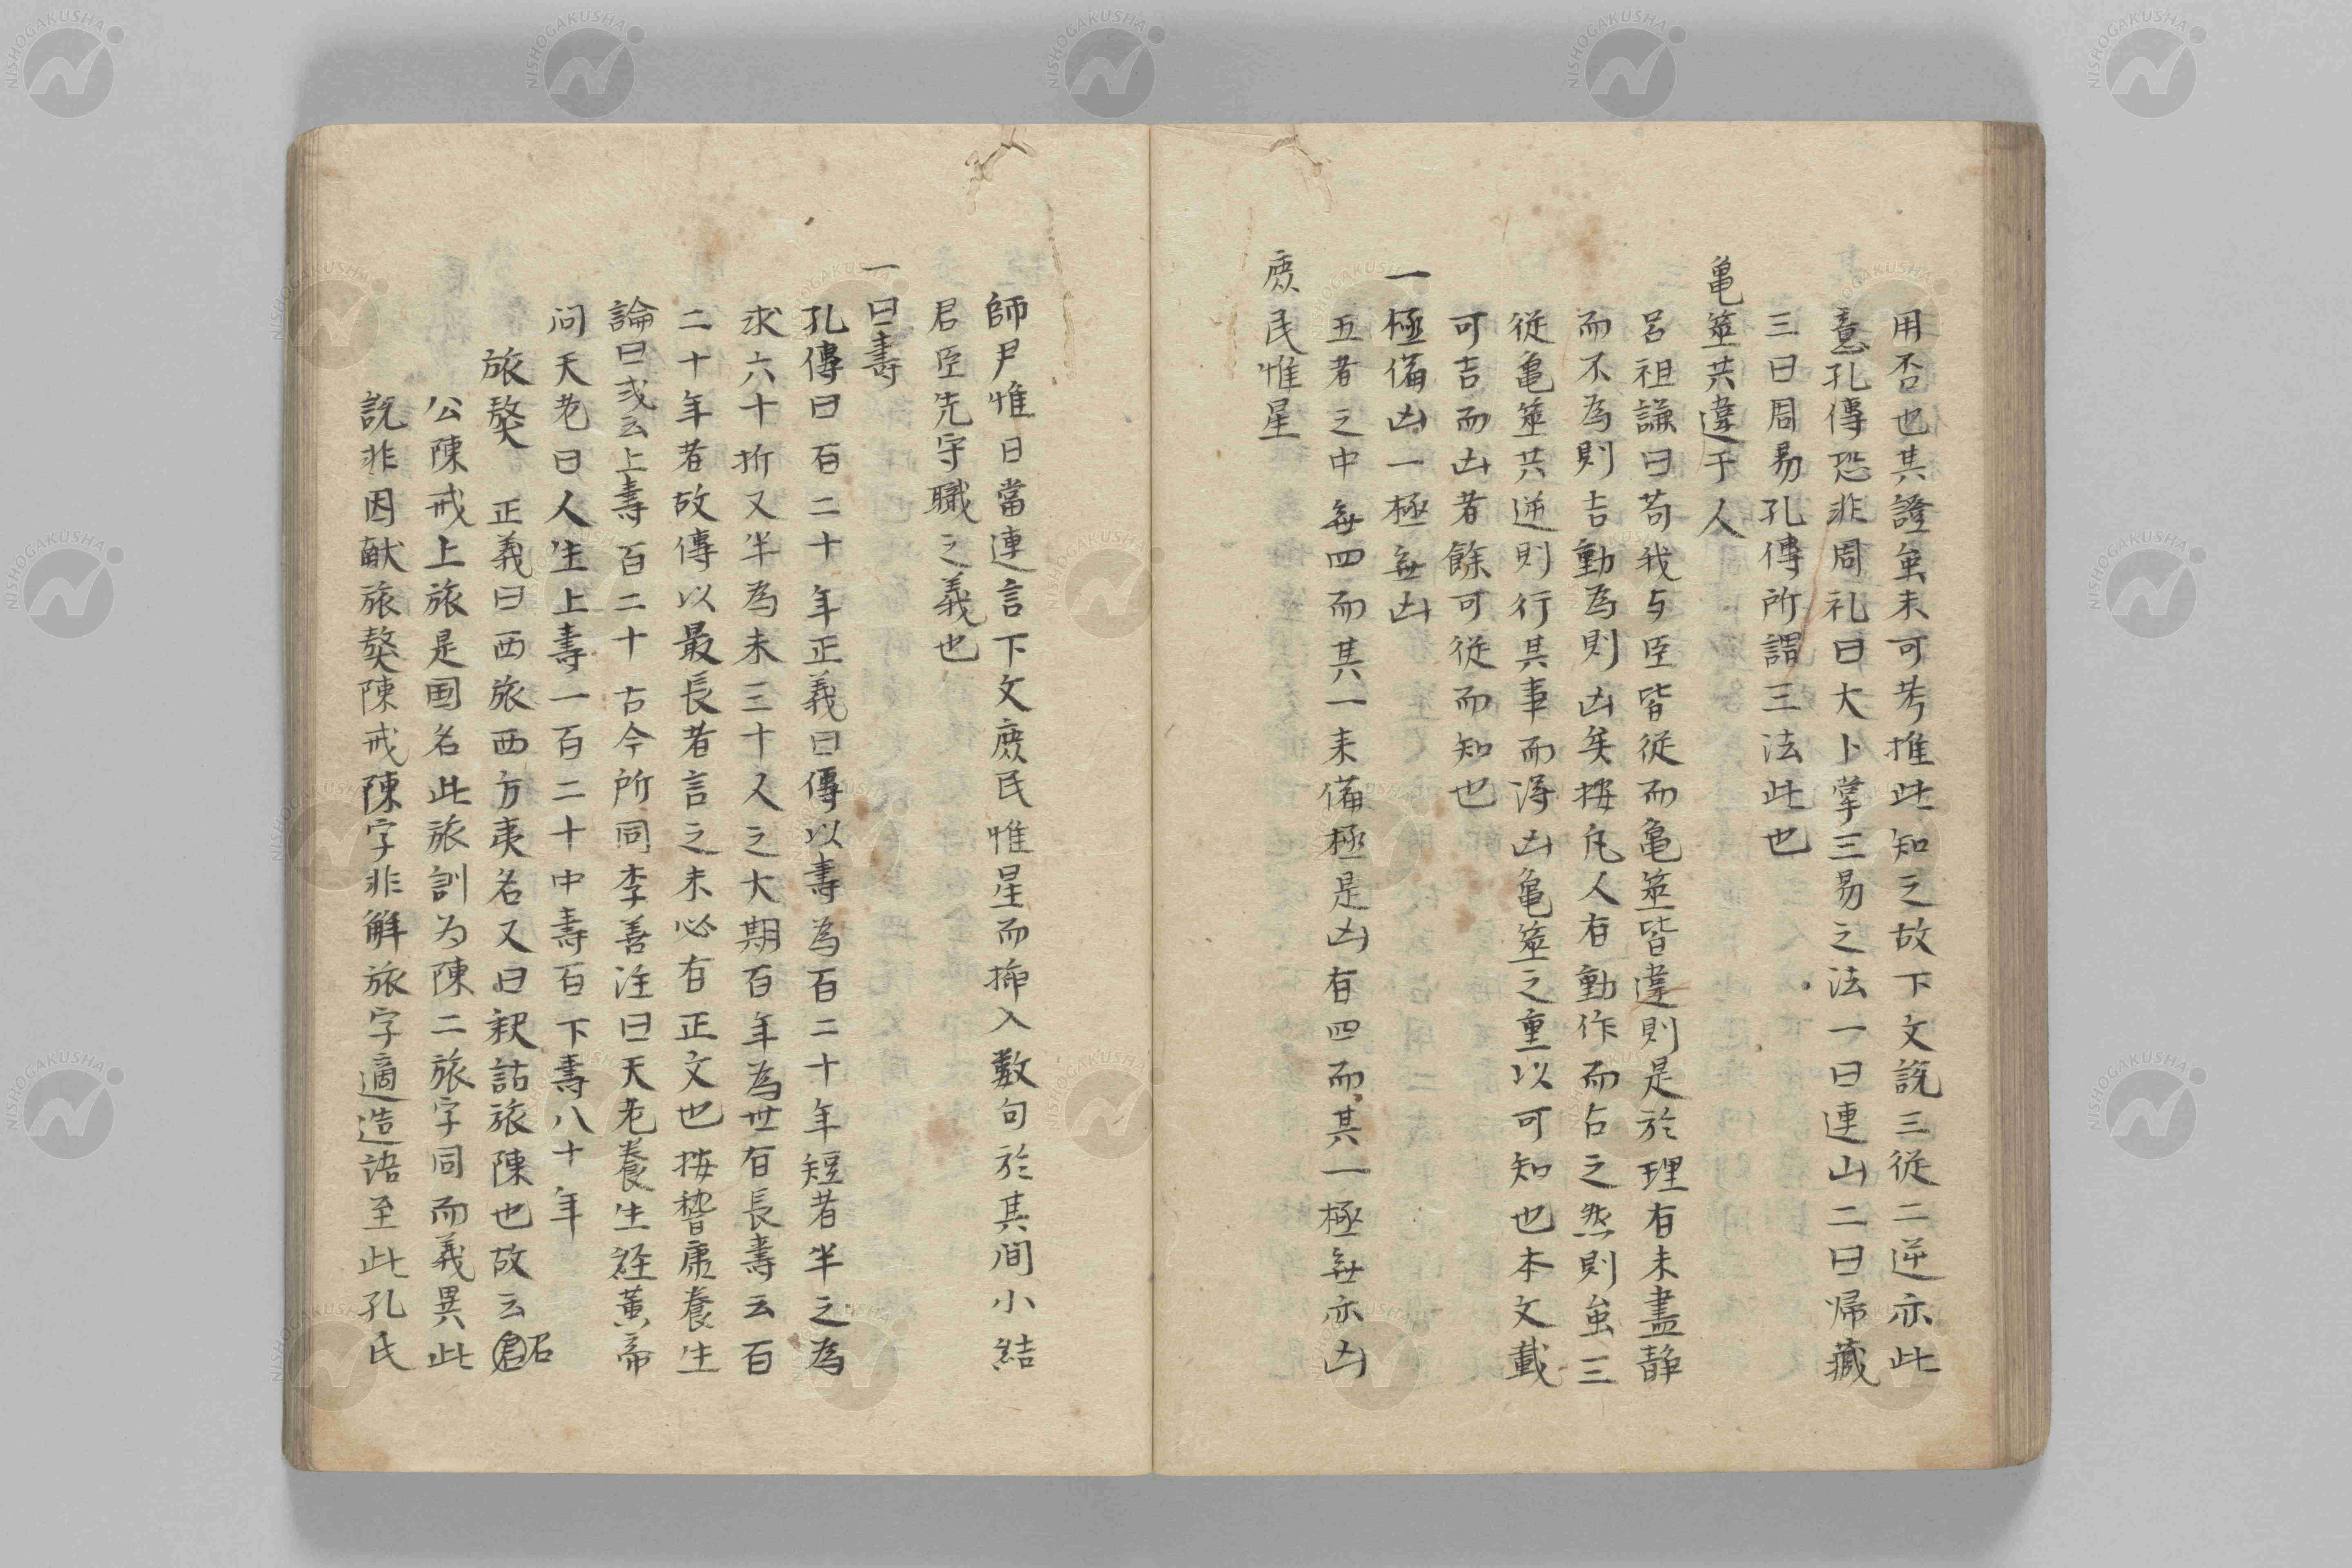 用否也其證虽未可考推此知之故下文説三従二逆亦此
意孔傳恐非周礼曰大卜掌三易之法一曰連山二曰帰藏
三曰周易孔傳所謂三法此也
亀筮共違于人
呂祖謙曰苟我与臣皆従而亀筮皆違則是於理有未盡静
而不為則吉動為則凶矣按凡人有動作而占之然則虽三
従亀筮共逆則行其事而得凶亀筮之重以可知也本文載
可吉而凶者餘可従而知也
一極備凶一極無凶
五者之中無四而其一来備極是凶有四而其一極無亦凶
庶民惟星
師尹惟日當連言下文庶民惟星而挿入数句於其間小結
君臣先守職之義也
一曰壽
孔傳曰百二十年正義曰傳以壽為百二十年短者半之為
求六十折又半為未三十人之大期百年為世有長壽云百
二十年者故傳以最長者言之未必有正文也按嵆康養生
論曰或云上壽百二十古今所同李善注曰天老養生経黄帝
问天老曰人生上壽一百二十中壽百下壽八十年
旅獒 正義曰西旅西方夷名又曰釈詁旅陳也故云君召
公陳戒上旅是国名此旅訓为陳二旅字同而義異此
説非因献旅獒陳戒陳字非解旅字適造語至此孔氏
NISHOGAKUSHA